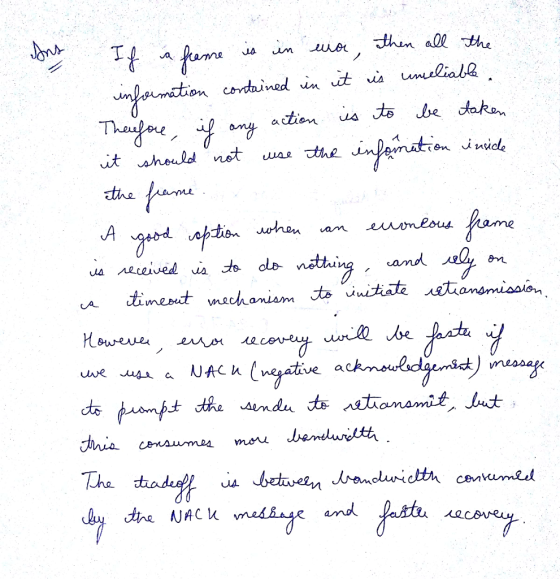 Ans If a frame is in error, then all the
information contained in it is unreliable.
Therefore, if any action is to be taken
it should not use the information inside
the frame.
A good option when an erroneous frame
is received is to do nothing, and rely on
a timeout mechanism to initiate retransmission.
However, error recovery will be faster if
we use a NACK (negative acknowledgement) message
to prompt the sender to retransmit, but
this consumes more bandwidth.
The tradeoff is between bandwidth consumed
by the NACK message and faster recovery.